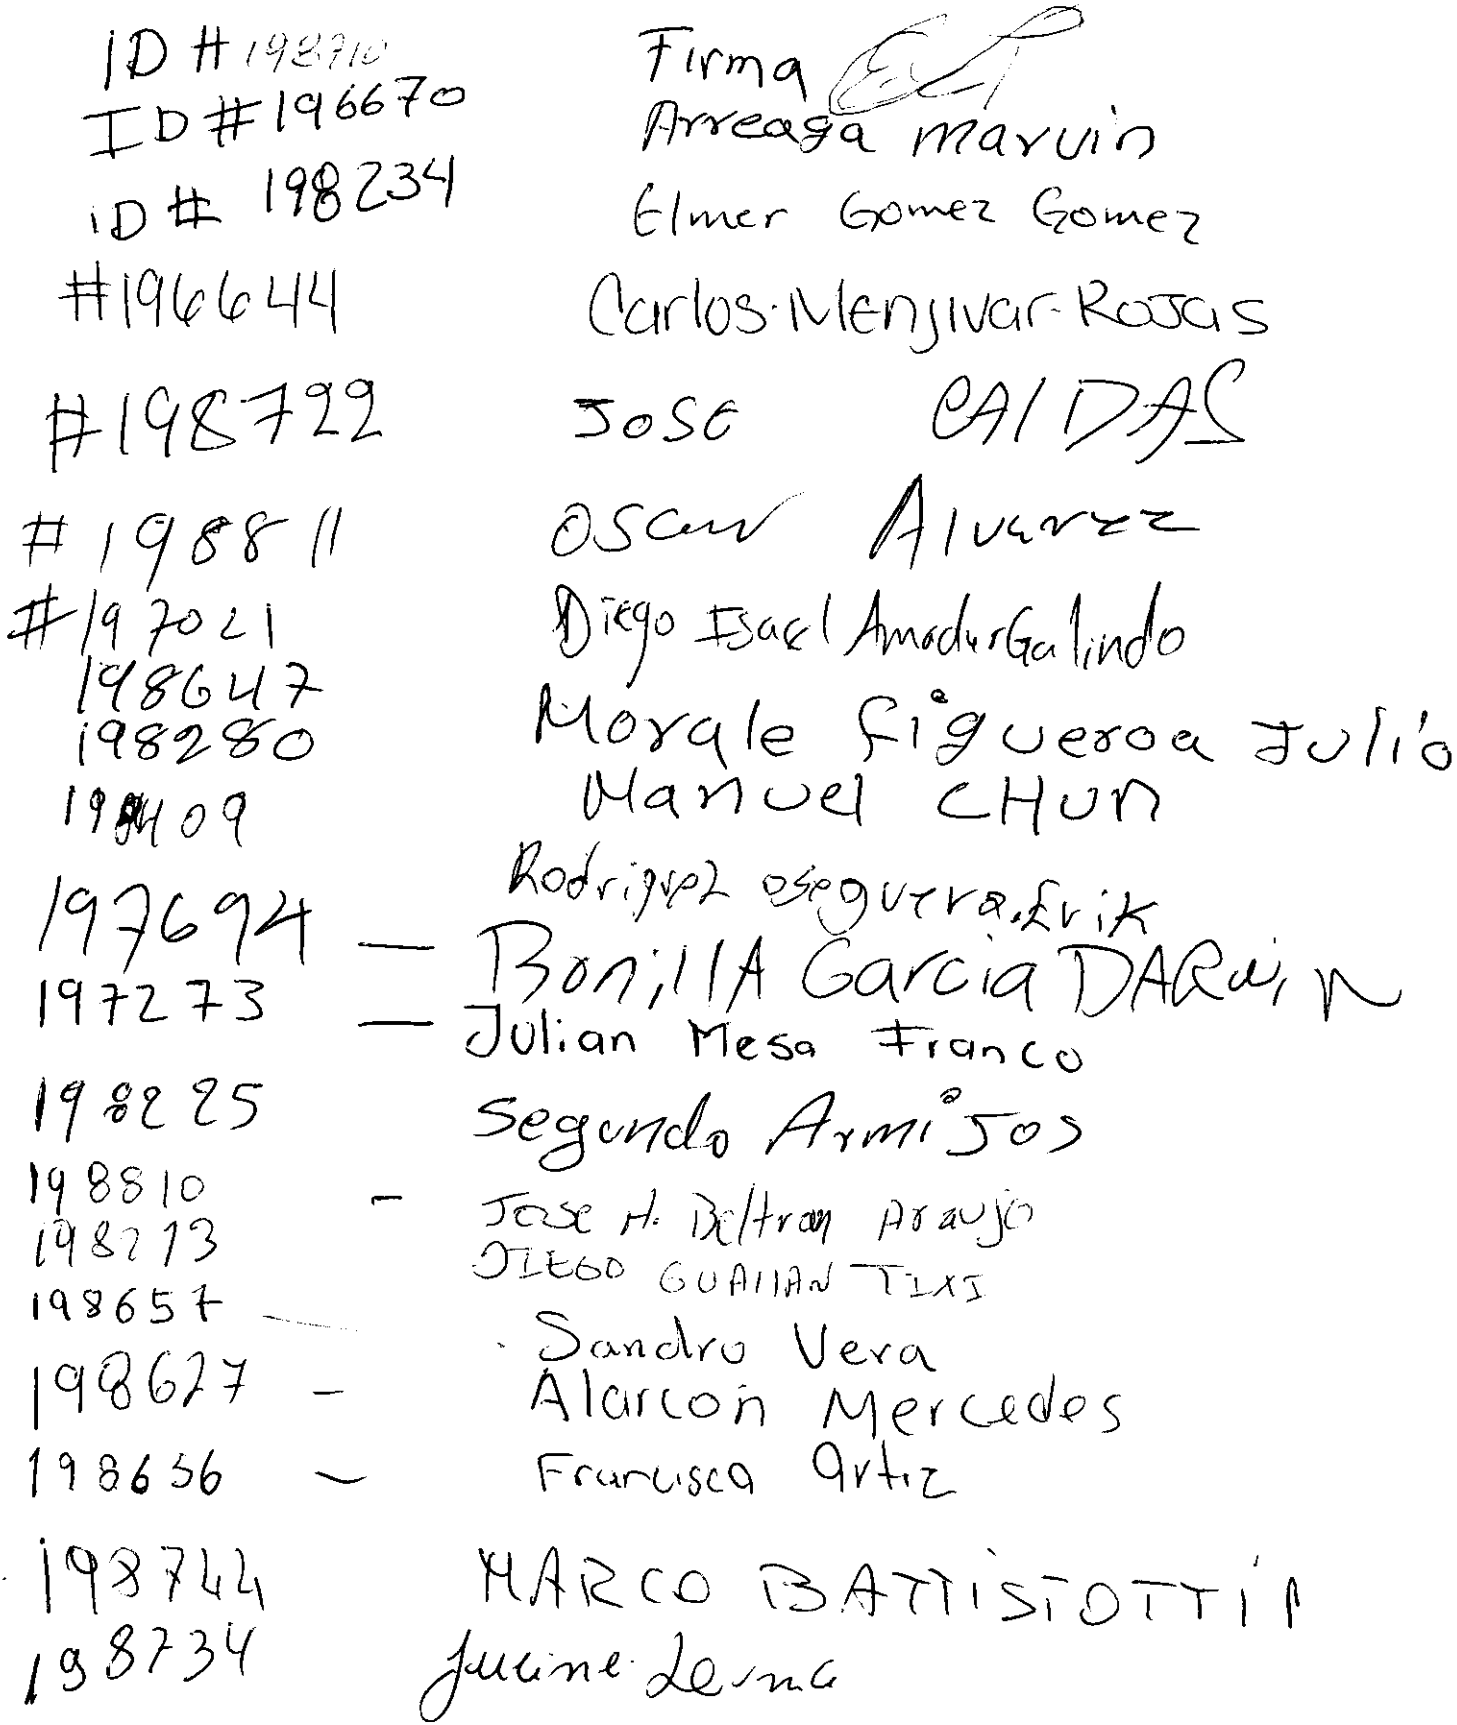 ID # 198710 Firma
ID # 196670 Arreaga marvin
iD # 198234 Elmer Gomez Gomez
#196644 Carlos. Menjivar-Rojas
#198722 Jose CAlDAS
#198811 oscar Alvarez
#197021 Diego Isael Amador Galindo
198647 Morale figueroa Julio
198280 Manuel CHUn
409 Rodriguez oseguera. Erik
197694 — BonillA Garcia DARwin
197273 — Julian Mesa Franco
198225 Segundo Armijos
198810 - Jose H. Beltran Araujo
198273 DIEGO GUAllAN TIXI
198657 Sandro Vera
198627 - Alarcon Mercedes
198656 - Francisca Ortiz
198744 MARCO BATTISTOTTI
198734